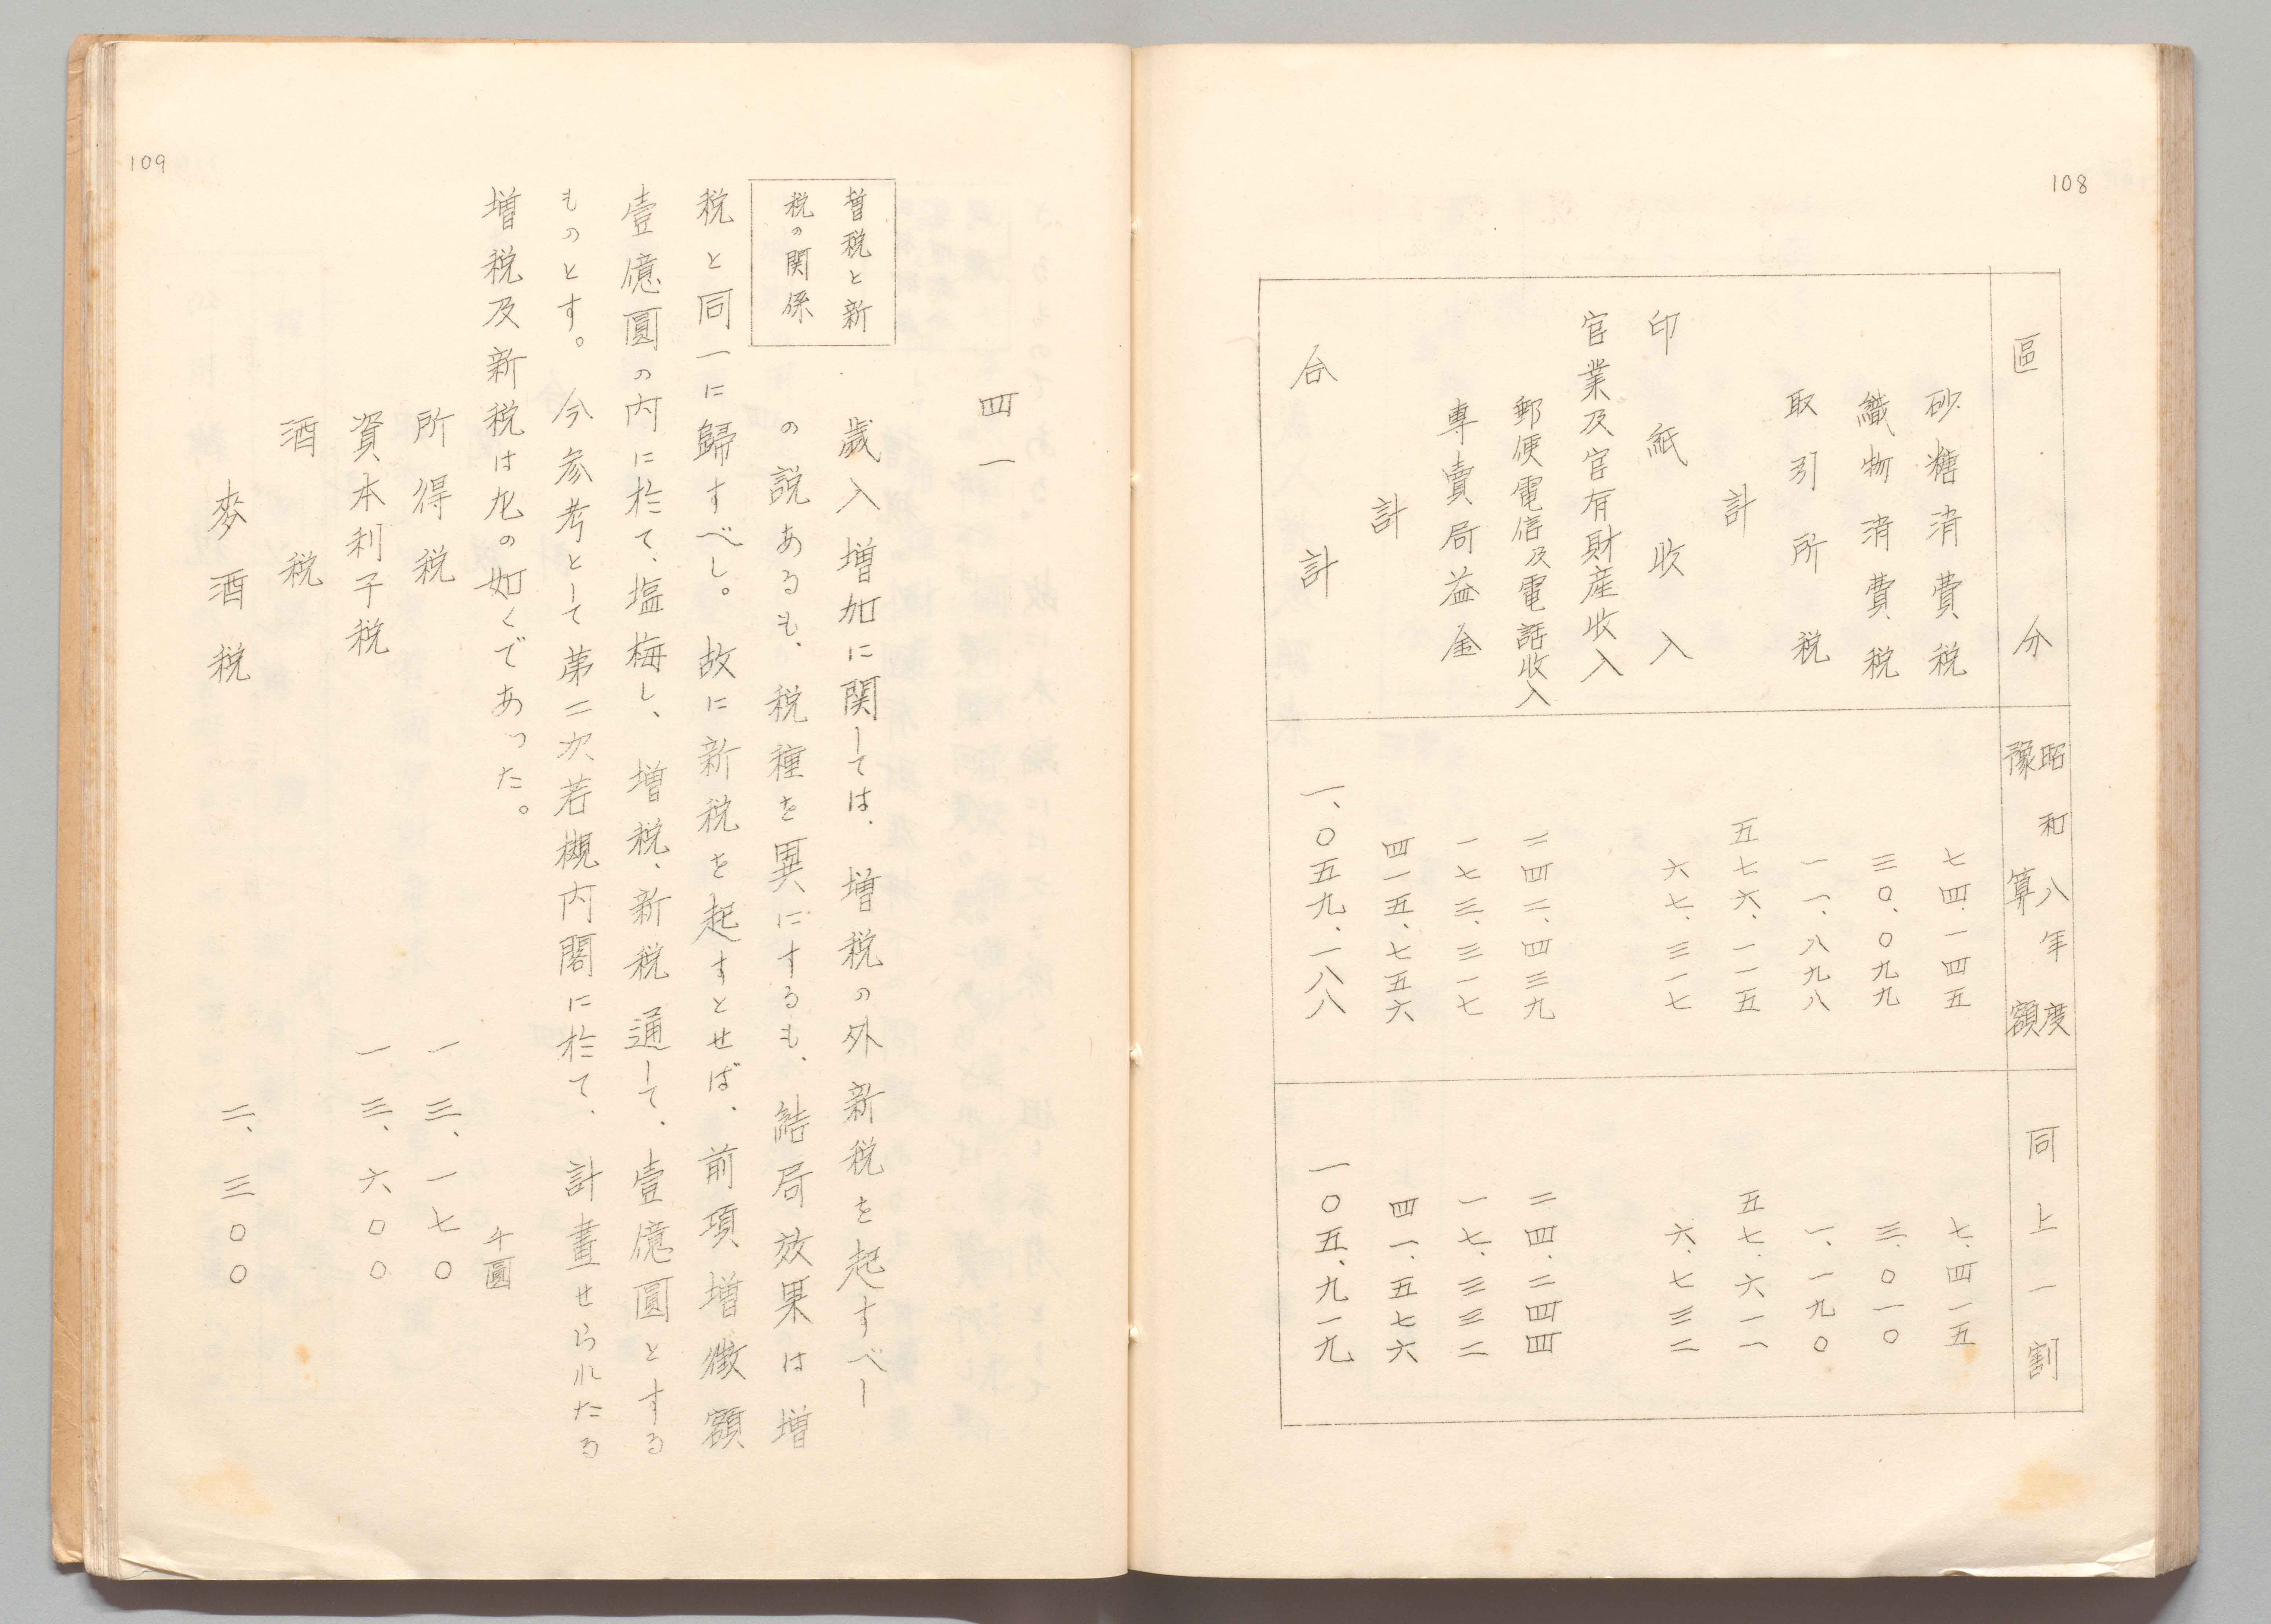 108
區分
昭和八年度
豫算額
同上一割
砂糖消費税 七四、一四五 七、四一五
織物消費税 三〇、〇九九 三、〇一〇
取引所税 一一、八九八 一、一九〇
計 五七六、一一五 五七、六一一
印紙收入 六七、三一七 六、七三二
官業及官有財産收入
郵便電信及電話收入 二四二、四三九 二四、二四四
専賣局益金 一七三、三一七 一七、三三二
計 四一五、七五六 四一、五七六
合計 一、〇五九、一八八 一〇五、九一九
109
四一
増税と新
税の関係
歳入増加に関しては、増税の外新税を起すべし
の説あるも、税種を異にするも、結局效果は増
税と同一に歸すべし。故に新税を起すとせば、前項増徴額
壹億圓の内に於て、塩梅し、増税、新税通して、壹億圓とする
ものとす。今参考として第二次若槻内閣に於て、計畫せられたる
増税及新税は左の如くであった。
千圓
所得税 一三、一七〇
資本利子税 一三、六〇〇
酒税
麥酒税 二、三〇〇